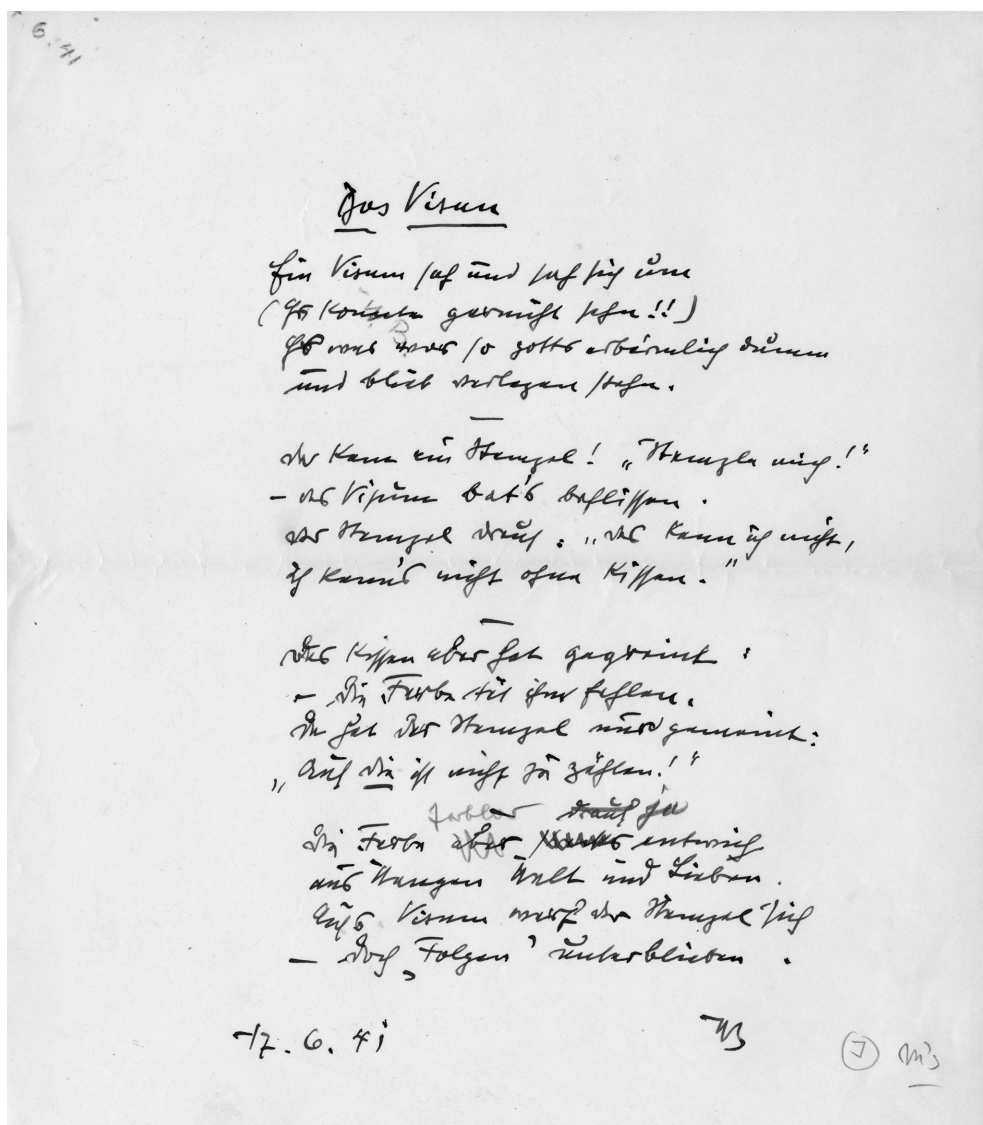 6.41
Das Visum
Ein Visum sah und sah sich um
(Es konnte garnicht sehn!!)
Es war so gotts erbärmlich dumm
und blieb verlegen stehn.
—
Da kam ein Stempel! „Stemple mich!"
– das Visum bat's beflissen.
Der Stempel drauf: „das kann ich nicht,
ich kann's nicht ohne Kissen."
—
Das Kissen aber hat gegreint:
– die Farbe tät ihm fehlen.
Da hat der Stempel nur gemeint:
„Auch die ist nicht zu zählen!"
drauf ja
Die Farbe aber entwich
aus Stempel Welt und Lieben.
Aufs Visum warf der Stempel sich
– doch ‚Folgen' unterblieben.
17.6.41
J